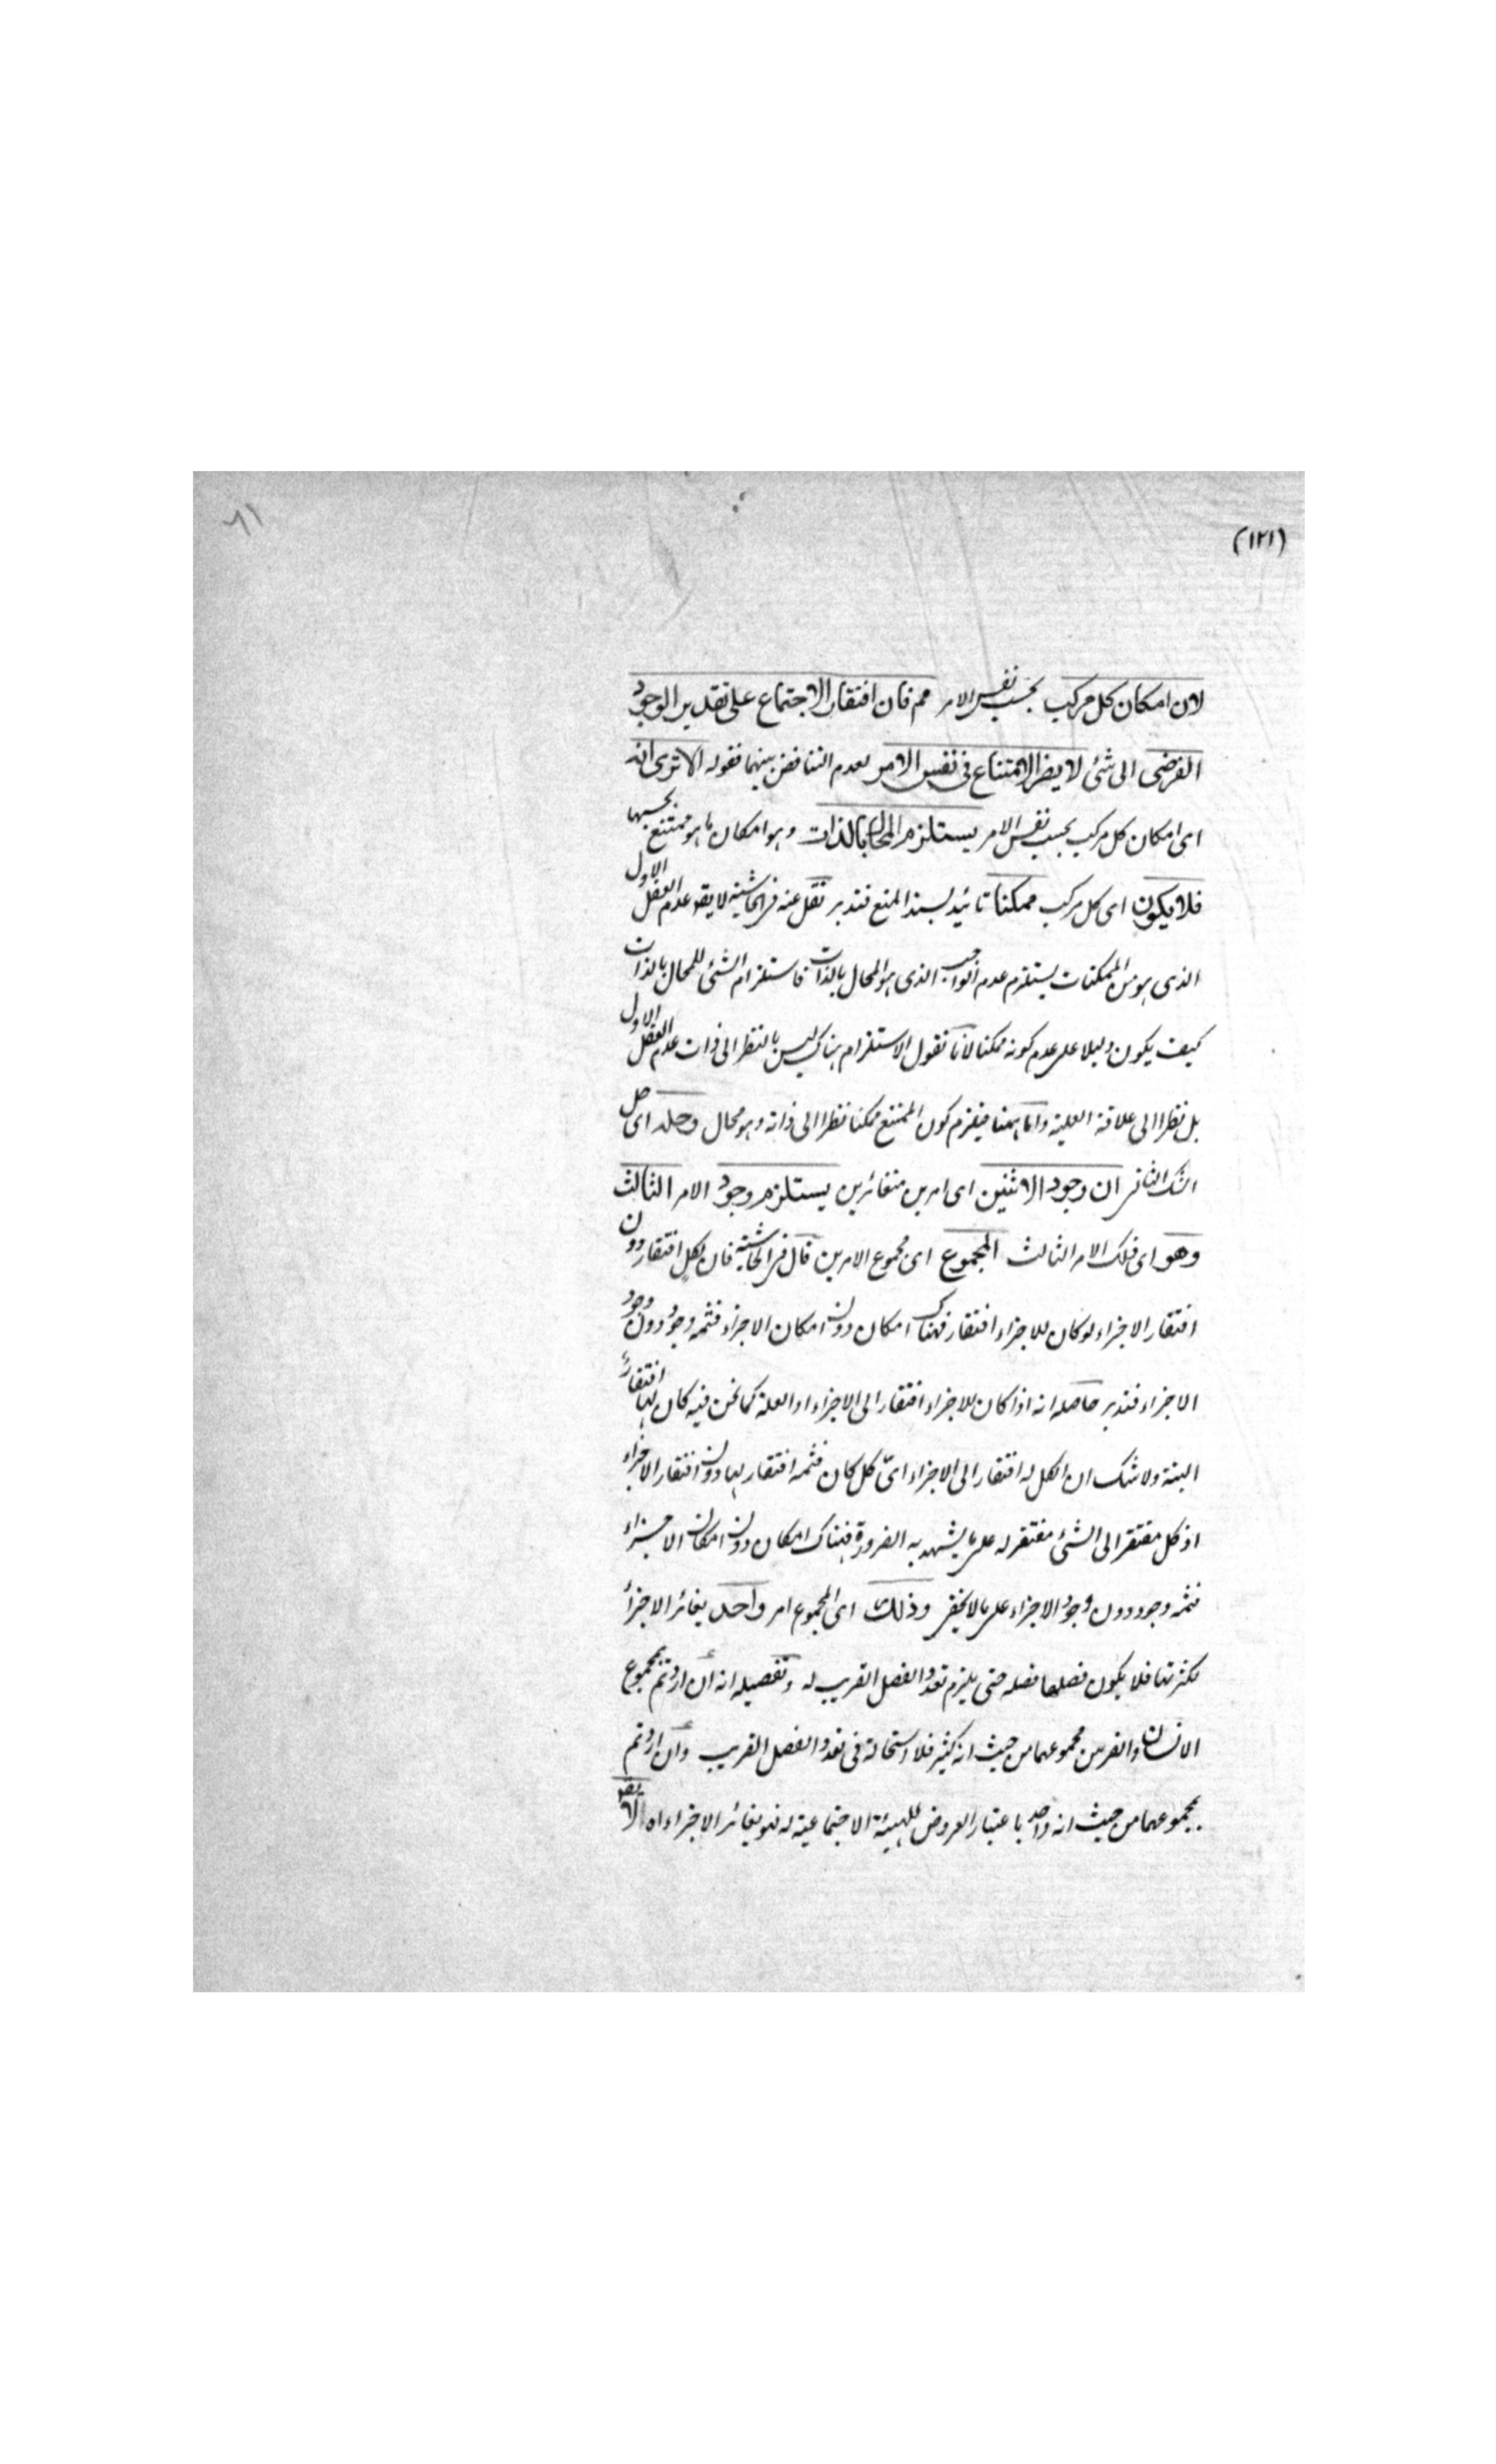 (١٢١)
٦١
لان امكان كل مركب بحسب نفس الامر مم فان افتقار الاجتماع على تقدير الوجود
الفرضى الى شئ لا يضر الامتناع فى نفس الامر لعدم التناقض بينهما فقوله الا ترى انه
اى امكان كل مركب بحسب نفس الامر يستلزم المحال بالذات وهو امكان ما هو ممتنع بحسبها
فلا يكون اى كل مركب ممكنا تائيد لسند المنع فتدبر نقل عنه فى الحاشية لا يقه عدم العقل الاول
الذى هو من الممكنات يستلزم عدم الواجب الذى هو المحال بالذات فاستلزام الشئ للمحال بالذات
كيف يكون دليلا على عدم كونه ممكنا لانا نقول الاستلزام هناك ليس بالنظر الى ذات عدم العقل الاول
بل نظرا الى علاقة العلية واما ههنا فيلزم كون الممتنع ممكنا نظرا الى ذاته وهو محال وحله اى حل
الشك الثانى ان وجود الاثنين اى امرين متغائرين يستلزم وجود الامر الثالث
وهو اى ذلك الامر الثالث المجموع اى مجموع الامرين قال فى الحاشية فان لكلٍ افتقار دون
افتقار الاجزاء لو كان للاجزاء افتقار فهناك امكان دون امكان الاجزاء فثمه وجود دون وجود
الاجزاء فتدبر حاصله انه اذا كان للاجزاء افتقار الى الاجزاء او العلة كما نحن فيه كان لها افتقارٌ
البتة ولا شك ان الكل له افتقار الى الاجزاء اىّ كل كان فثمه افتقار لها دون افتقار الاجزاء
اذ كل مفتقر الى الشئ مفتقر له على ما يشهد به الضرورة فهناك امكان دون امكان الاجزاء
فثمه وجود دون وجود الاجزاء على ما لا يخفى وذلك اى المجموع امر واحد يغائر الاجزأ
لكثرتها فلا يكون فصلها فصله حتى يلزم تعدد الفصل القريب له وتفصيله انه ان اردتم بمجموع
الانسان والفرس مجموعهما من حيث انه كثير فلا استحالة فى تعدد الفصل القريب وان اردتم
بمجموعهما من حيث انه واحد باعتبار العروض للهيئة الاجتماعية له فهو يغائر الاجزاء اه لا يقه